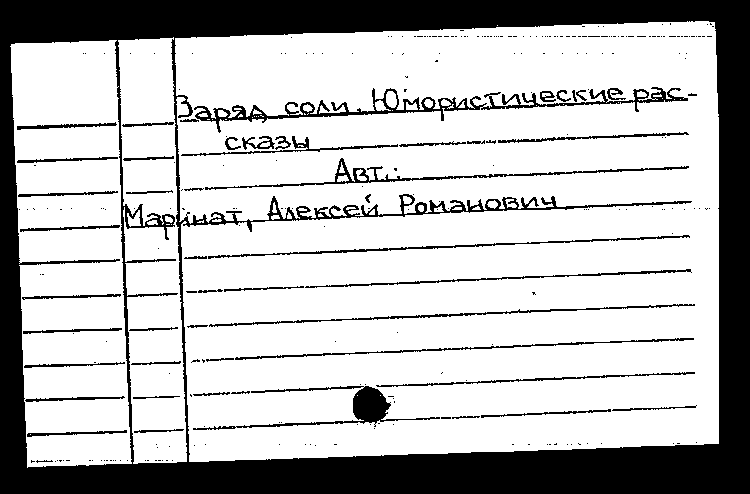 Заряд соли. Юмористические рас-
сказы
Авт.:
Маринат, Алексей Романович